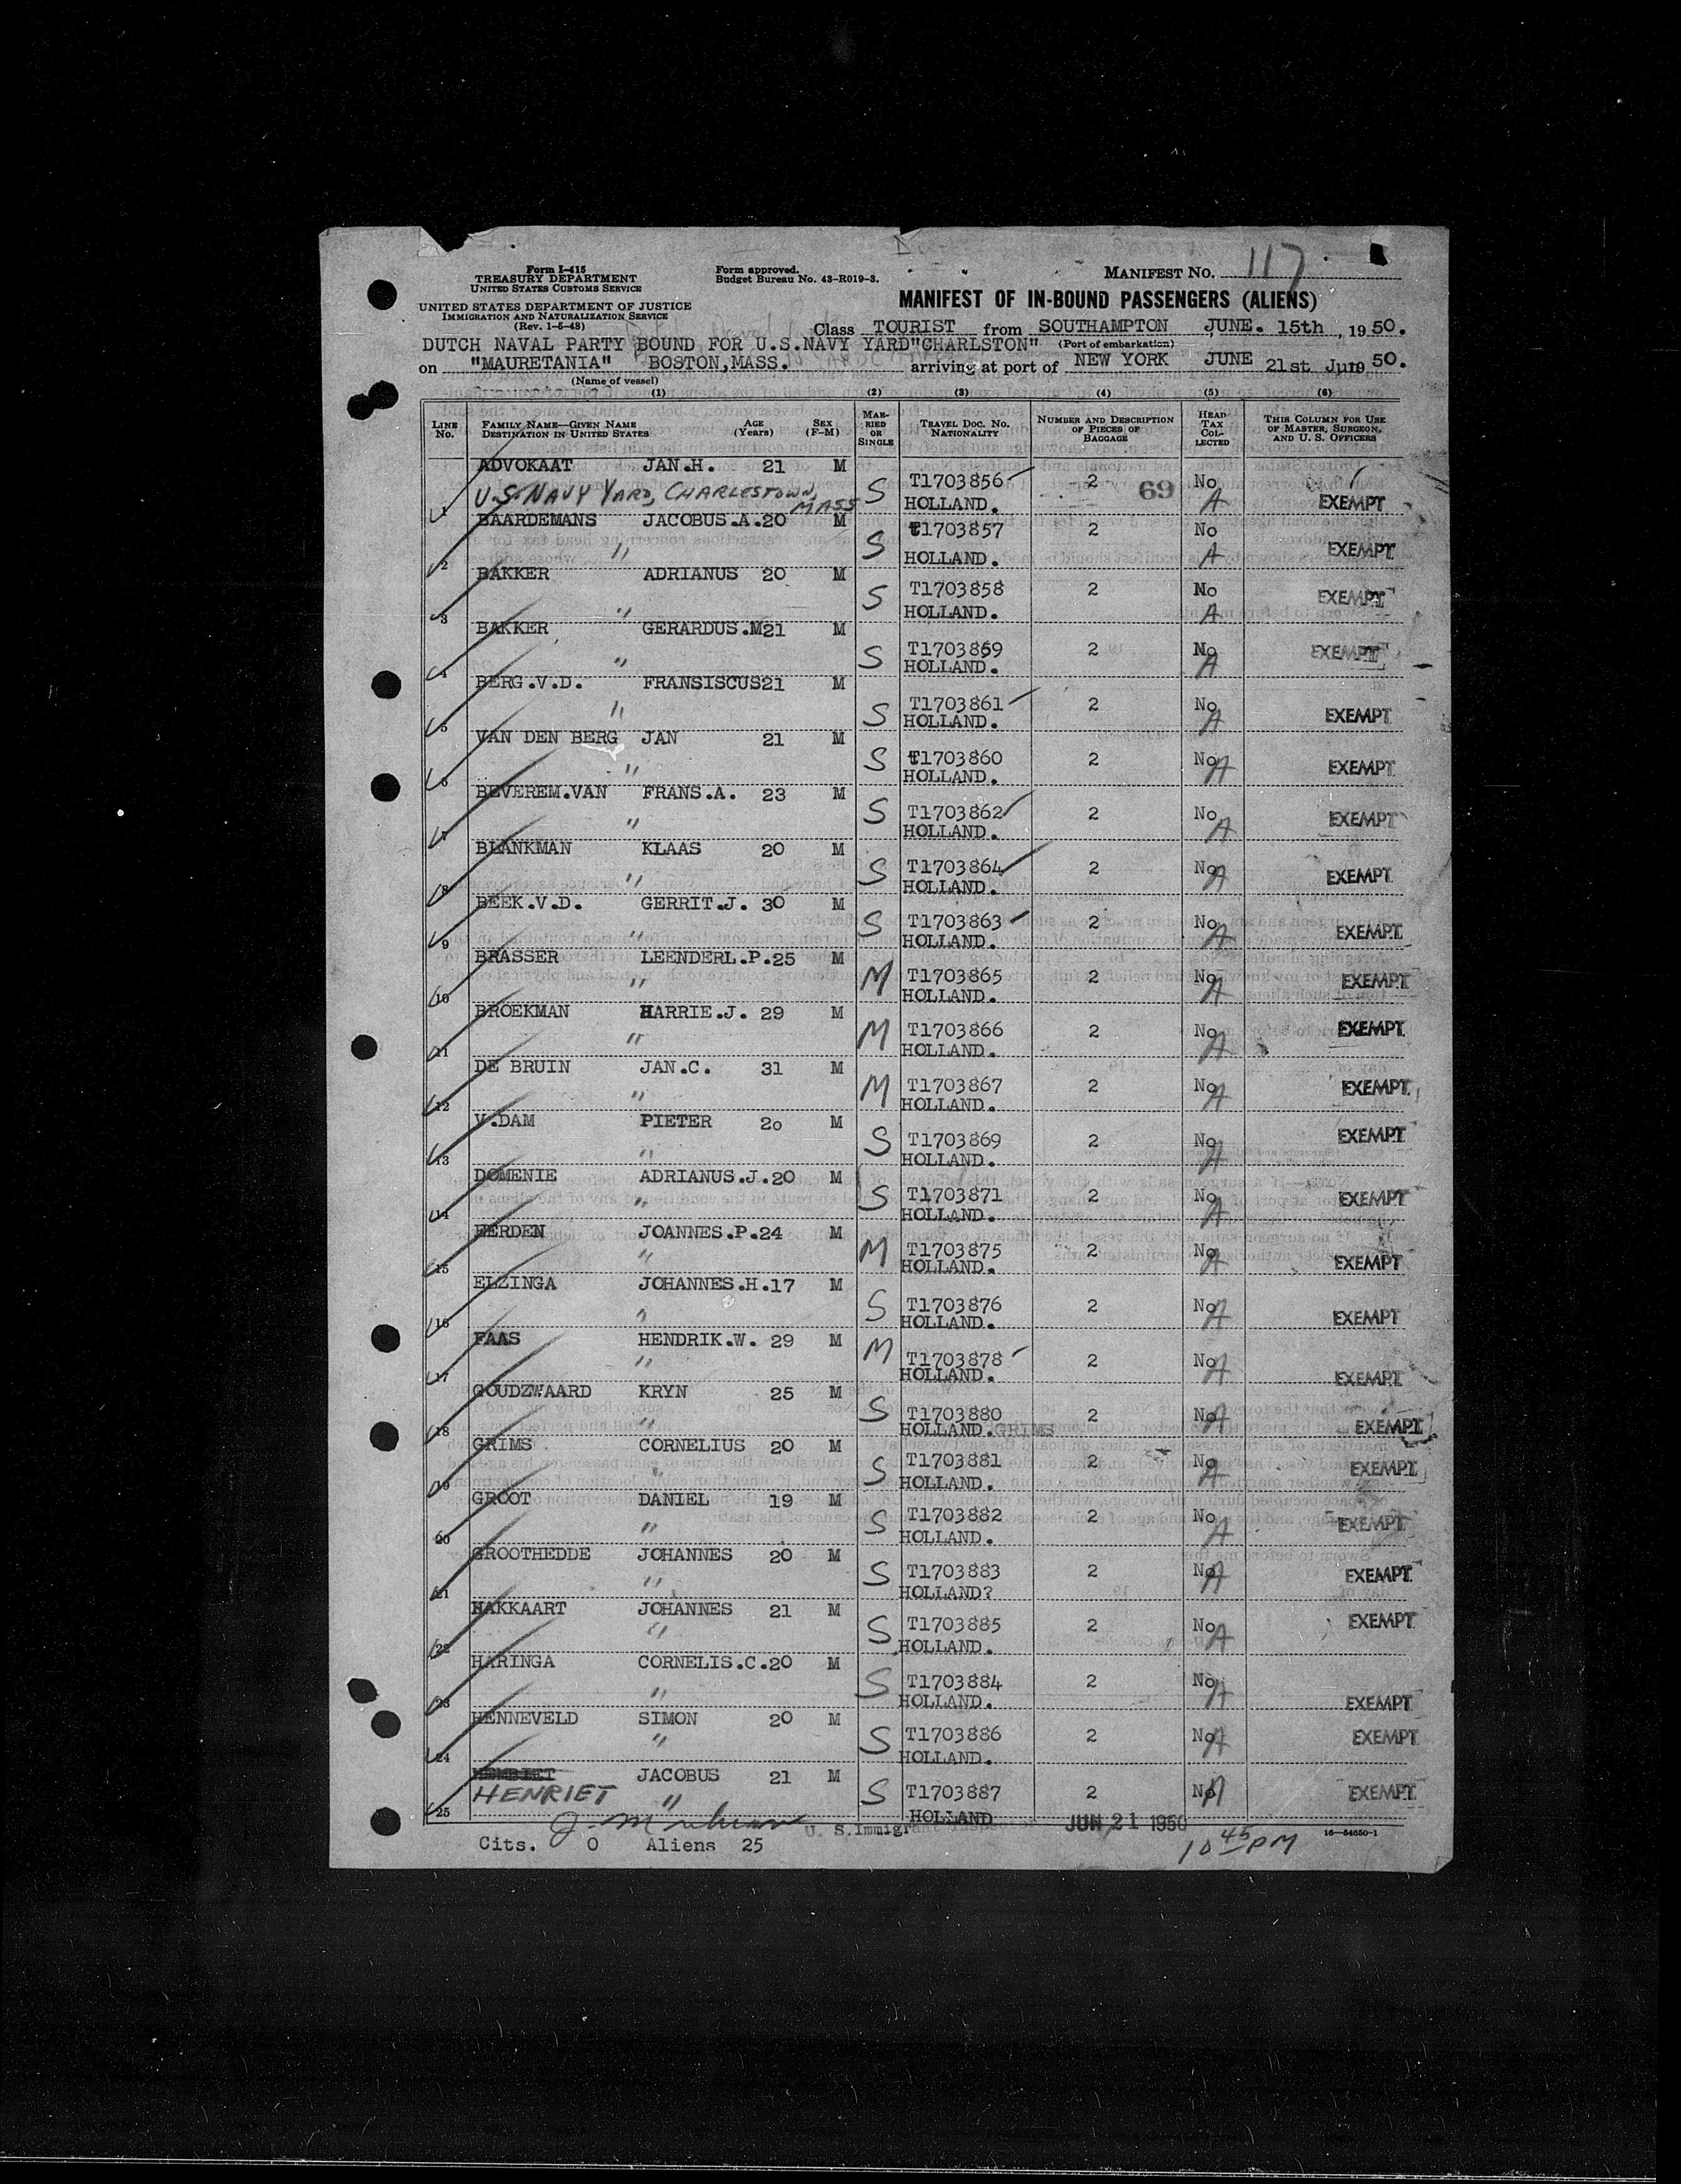 Form I-415
TREASURY DEPARTMENT
UNITED STATES CUSTOMS SERVICE
UNITED STATES DEPARTMENT OF JUSTICE
IMMIGRATION AND NATURALIZATION SERVICE
(Rev. 1-5-48)
Form approved.
Budget Bureau No. 43-R019-3.
MANIFEST NO. 117
MANIFEST OF IN-BOUND PASSENGERS (ALIENS)
Class TOURIST from SOUTHAMPTON JUNE. 15th, 1950.
DUTCH NAVAL PARTY BOUND FOR U.S.NAVY YARD"CHARLSTON" (Port of embarkation)
on "MAURETANIA" BOSTON,MASS. arriving at port of NEW YORK JUNE 21st Jun 1950.
(Name of vessel)
(1) (2) (3) (4) (5) (6)
LINE No. FAMILY NAME—GIVEN NAME DESTINATION IN UNITED STATES AGE (Years) SEX (F-M) MARRIED OR SINGLE TRAVEL DOC. NO. NATIONALITY NUMBER AND DESCRIPTION OF PIECES OF BAGGAGE HEAD TAX COLLECTED THIS COLUMN FOR USE OF MASTER, SURGEON, AND U. S. OFFICERS
ADVOKAAT JAN.H. 21 M
1 U.S. NAVY YARD, CHARLESTOWN, MASS S T1703856 HOLLAND. 2 69 No A EXEMPT
BAARDEMANS JACOBUS.A.20 M
2 " S T1703857 HOLLAND. 2 No A EXEMPT
BAKKER ADRIANUS 20 M
3 " S T1703858 HOLLAND. 2 No A EXEMPT
BAKKER GERARDUS.M21 M
4 " S T1703859 HOLLAND. 2 No A EXEMPT
BERG.V.D. FRANSISCUS21 M
5 " S T1703861 HOLLAND. 2 No A EXEMPT
VAN DEN BERG JAN 21 M
6 " S T1703860 HOLLAND. 2 No A EXEMPT
BEVEREM.VAN FRANS.A. 23 M
7 " S T1703862 HOLLAND. 2 No A EXEMPT
BLANKMAN KLAAS 20 M
8 " S T1703864 HOLLAND. 2 No A EXEMPT
BEEK.V.D. GERRIT.J. 30 M
9 " S T1703863 HOLLAND. 2 No A EXEMPT
BRASSER LEENDERL.P.25 M
10 " M T1703865 HOLLAND. 2 No A EXEMPT
BROEKMAN HARRIE.J. 29 M
11 " M T1703866 HOLLAND. 2 No A EXEMPT
DE BRUIN JAN.C. 31 M
12 " M T1703867 HOLLAND. 2 No A EXEMPT
V.DAM PIETER 2o M
13 " S T1703869 HOLLAND. 2 No A EXEMPT
DOMENIE ADRIANUS.J.20 M
14 " S T1703871 HOLLAND. 2 No A EXEMPT
HERDEN JOANNES.P.24 M
15 " M T1703875 HOLLAND. 2 No A EXEMPT
ELZINGA JOHANNES.H.17 M
16 " S T1703876 HOLLAND. 2 No A EXEMPT
FAAS HENDRIK.W. 29 M
17 " M T1703878 HOLLAND. 2 No A EXEMPT
GOUDZWAARD KRYN 25 M
18 " S T1703880 HOLLAND. GRIMS 2 No A EXEMPT
GRIMS CORNELIUS 20 M
19 " S T1703881 HOLLAND. 2 No A EXEMPT
GROOT DANIEL 19 M
20 " S T1703882 HOLLAND. 2 No A EXEMPT
GROOTHEDDE JOHANNES 20 M
21 " S T1703883 HOLLAND? 2 No A EXEMPT
HAKKAART JOHANNES 21 M
22 " S T1703885 HOLLAND. 2 No A EXEMPT
HARINGA CORNELIS.C.20 M
23 " S T1703884 HOLLAND. 2 No A EXEMPT
HENNEVELD SIMON 20 M
24 " S T1703886 HOLLAND. 2 No A EXEMPT
JACOBUS 21 M
25 HENRIET " S T1703887 HOLLAND 2 No A EXEMPT
U. S. Immigrant Inspector JUN 21 1950 16—54650-1
Cits. 0 Aliens 25 10 45 PM